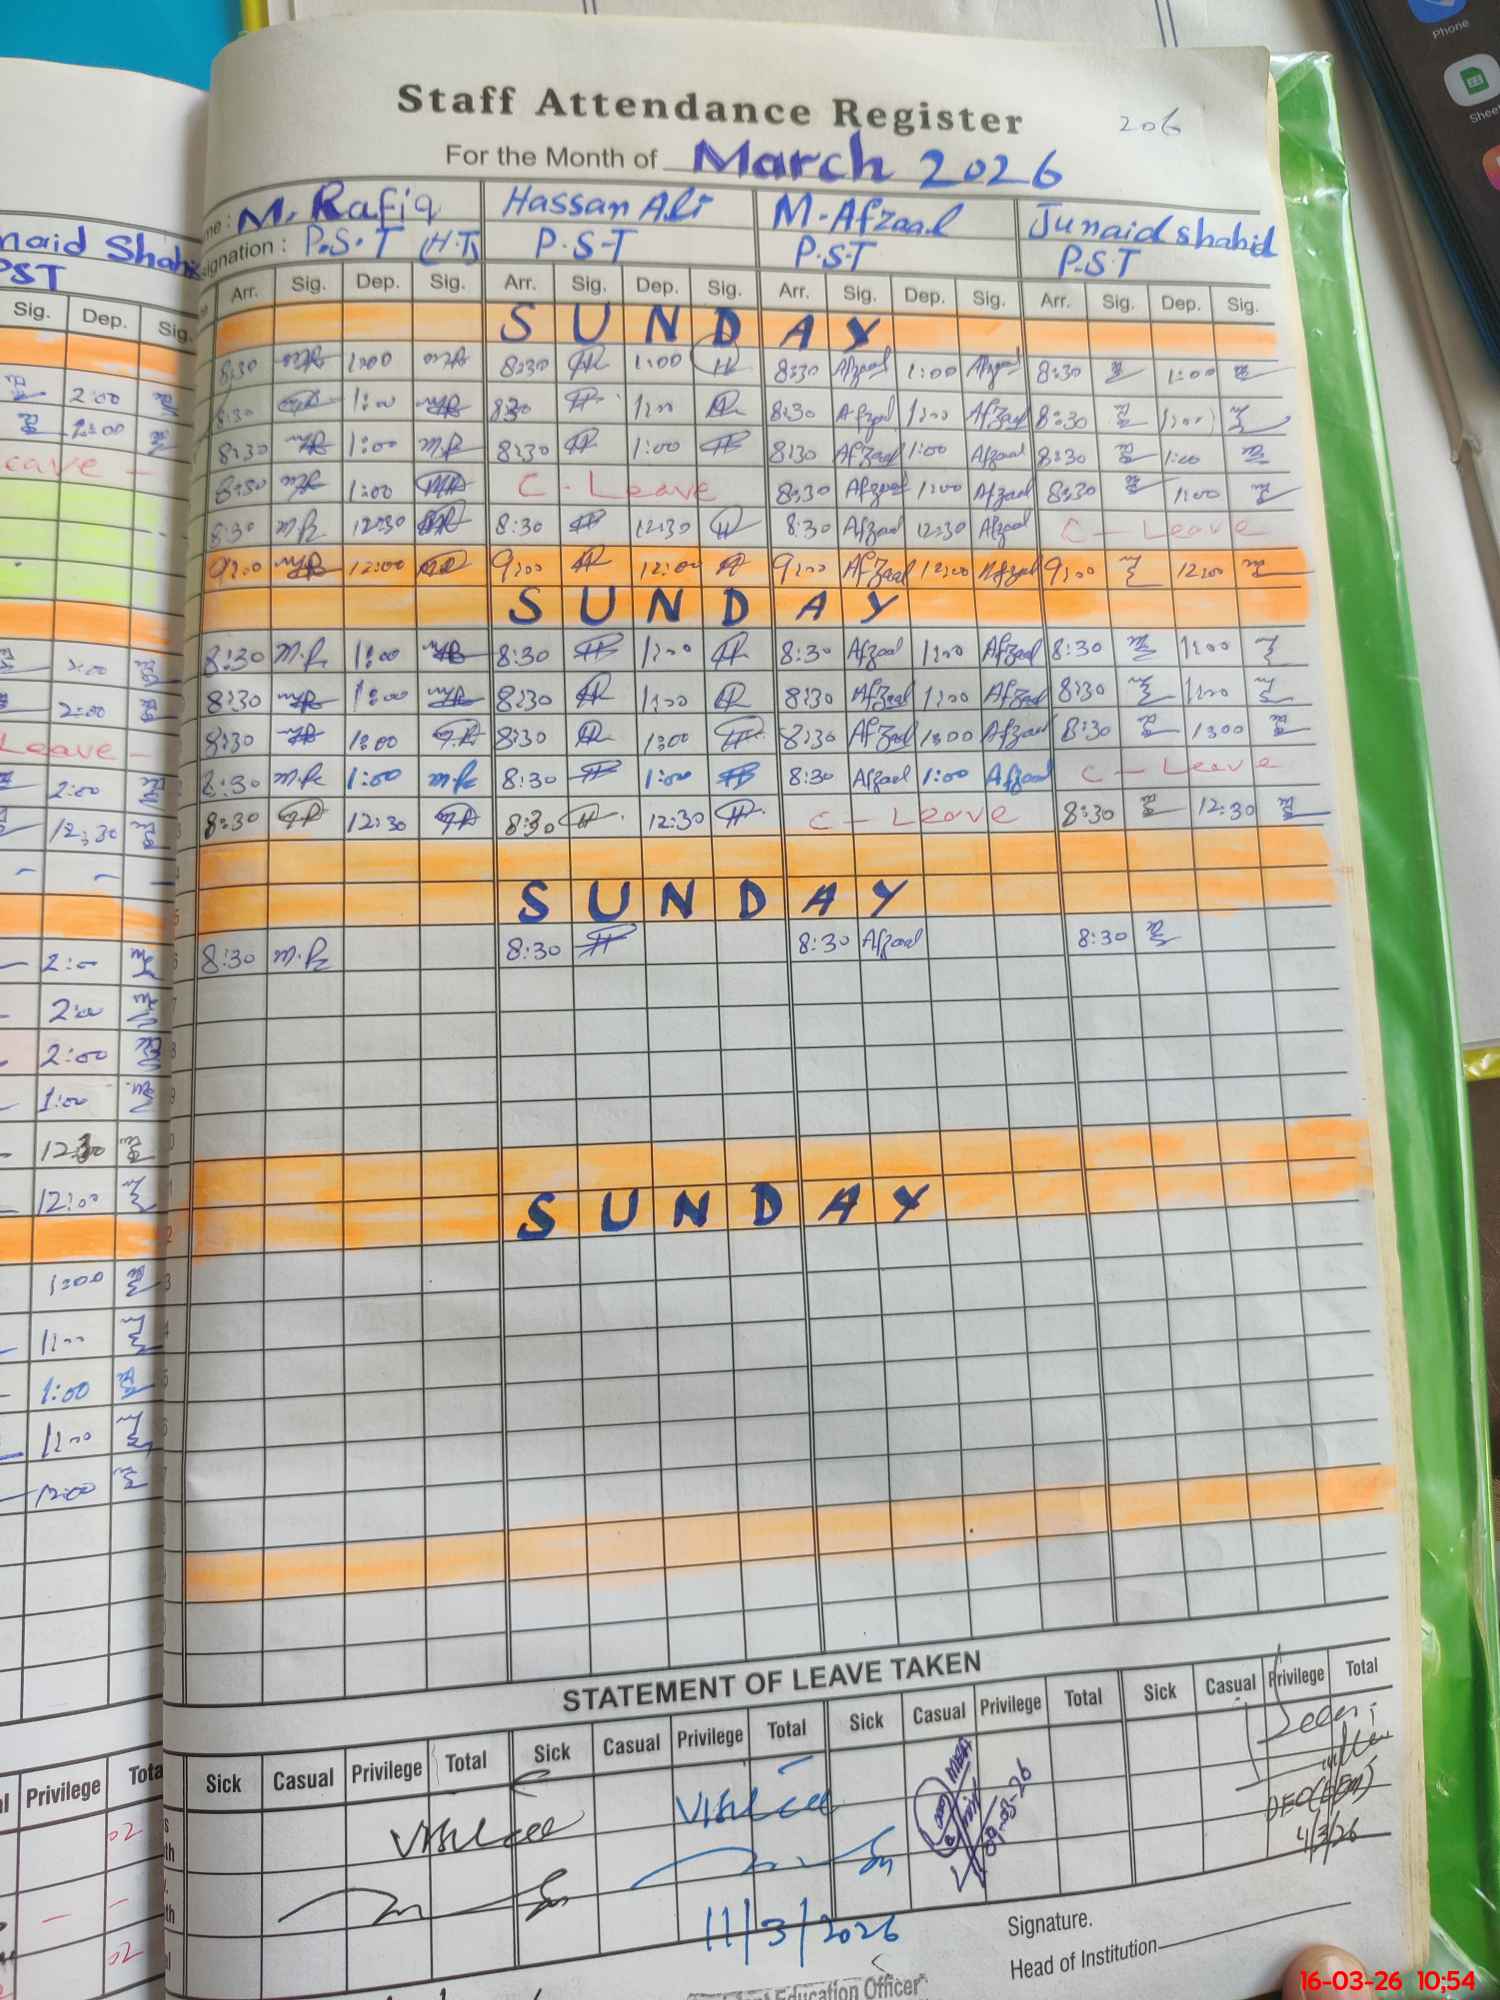 Staff Attendance Register
206
For the Month of March 2026
M. Rafiq Hassan Ali M-Afzaal Junaid Shahid
Designation : P.S.T (H.T) P.S-T P.S-T P.S.T
Arr. Sig. Dep. Sig. Arr. Sig. Dep. Sig. Arr. Sig. Dep. Sig. Arr. Sig. Dep. Sig.
SUNDAY
8:30 1:00 8:30 1:00 8:30 Afzaal 1:00 Afzaal 8:30 1:00
8:30 1:00 8:30 1:00 8:30 Afzaal 1:00 Afzaal 8:30 1:00
8:30 1:00 M.R 8:30 1:00 8:30 Afzaal 1:00 Afzaal 8:30 1:00
8:30 1:00 C - Leave 8:30 Afzaal 1:00 Afzaal 8:30 1:00
8:30 M.R 12:30 8:30 12:30 8:30 Afzaal 12:30 Afzaal C - Leave
9:00 12:00 9:00 12:00 9:00 Afzaal 12:00 Afzaal 9:00 12:00
SUNDAY
8:30 M.R 1:00 8:30 1:00 8:30 Afzaal 1:00 Afzaal 8:30 1:00
8:30 1:00 8:30 1:00 8:30 Afzaal 1:00 Afzaal 8:30 1:00
8:30 1:00 8:30 1:00 8:30 Afzaal 1:00 Afzaal 8:30 1:00
8:30 M.R 1:00 M.R 8:30 1:00 8:30 Afzaal 1:00 Afzaal C - Leave
8:30 12:30 8:30 12:30 C - Leave 8:30 12:30
SUNDAY
8:30 M.R 8:30 8:30 Afzaal 8:30
SUNDAY
STATEMENT OF LEAVE TAKEN
Sick Casual Privilege Total Sick Casual Privilege Total Sick Casual Privilege Total Sick Casual Privilege Total
Visited Visited
09-03-26
DEO
4/3/26
11/3/2026
Signature.
Head of Institution
Education Officer
naid Shahid
PST
Sig. Dep. Sig.
2:00
2:00
Leave -
2:00
2:00
Leave -
2:00
12:30
2:00
2:00
2:00
1:00
12:30
12:00
1:00
1:00
1:00
1:00
12:00
Privilege Total
02
02
Phone
Sheets
16-03-26 10;54